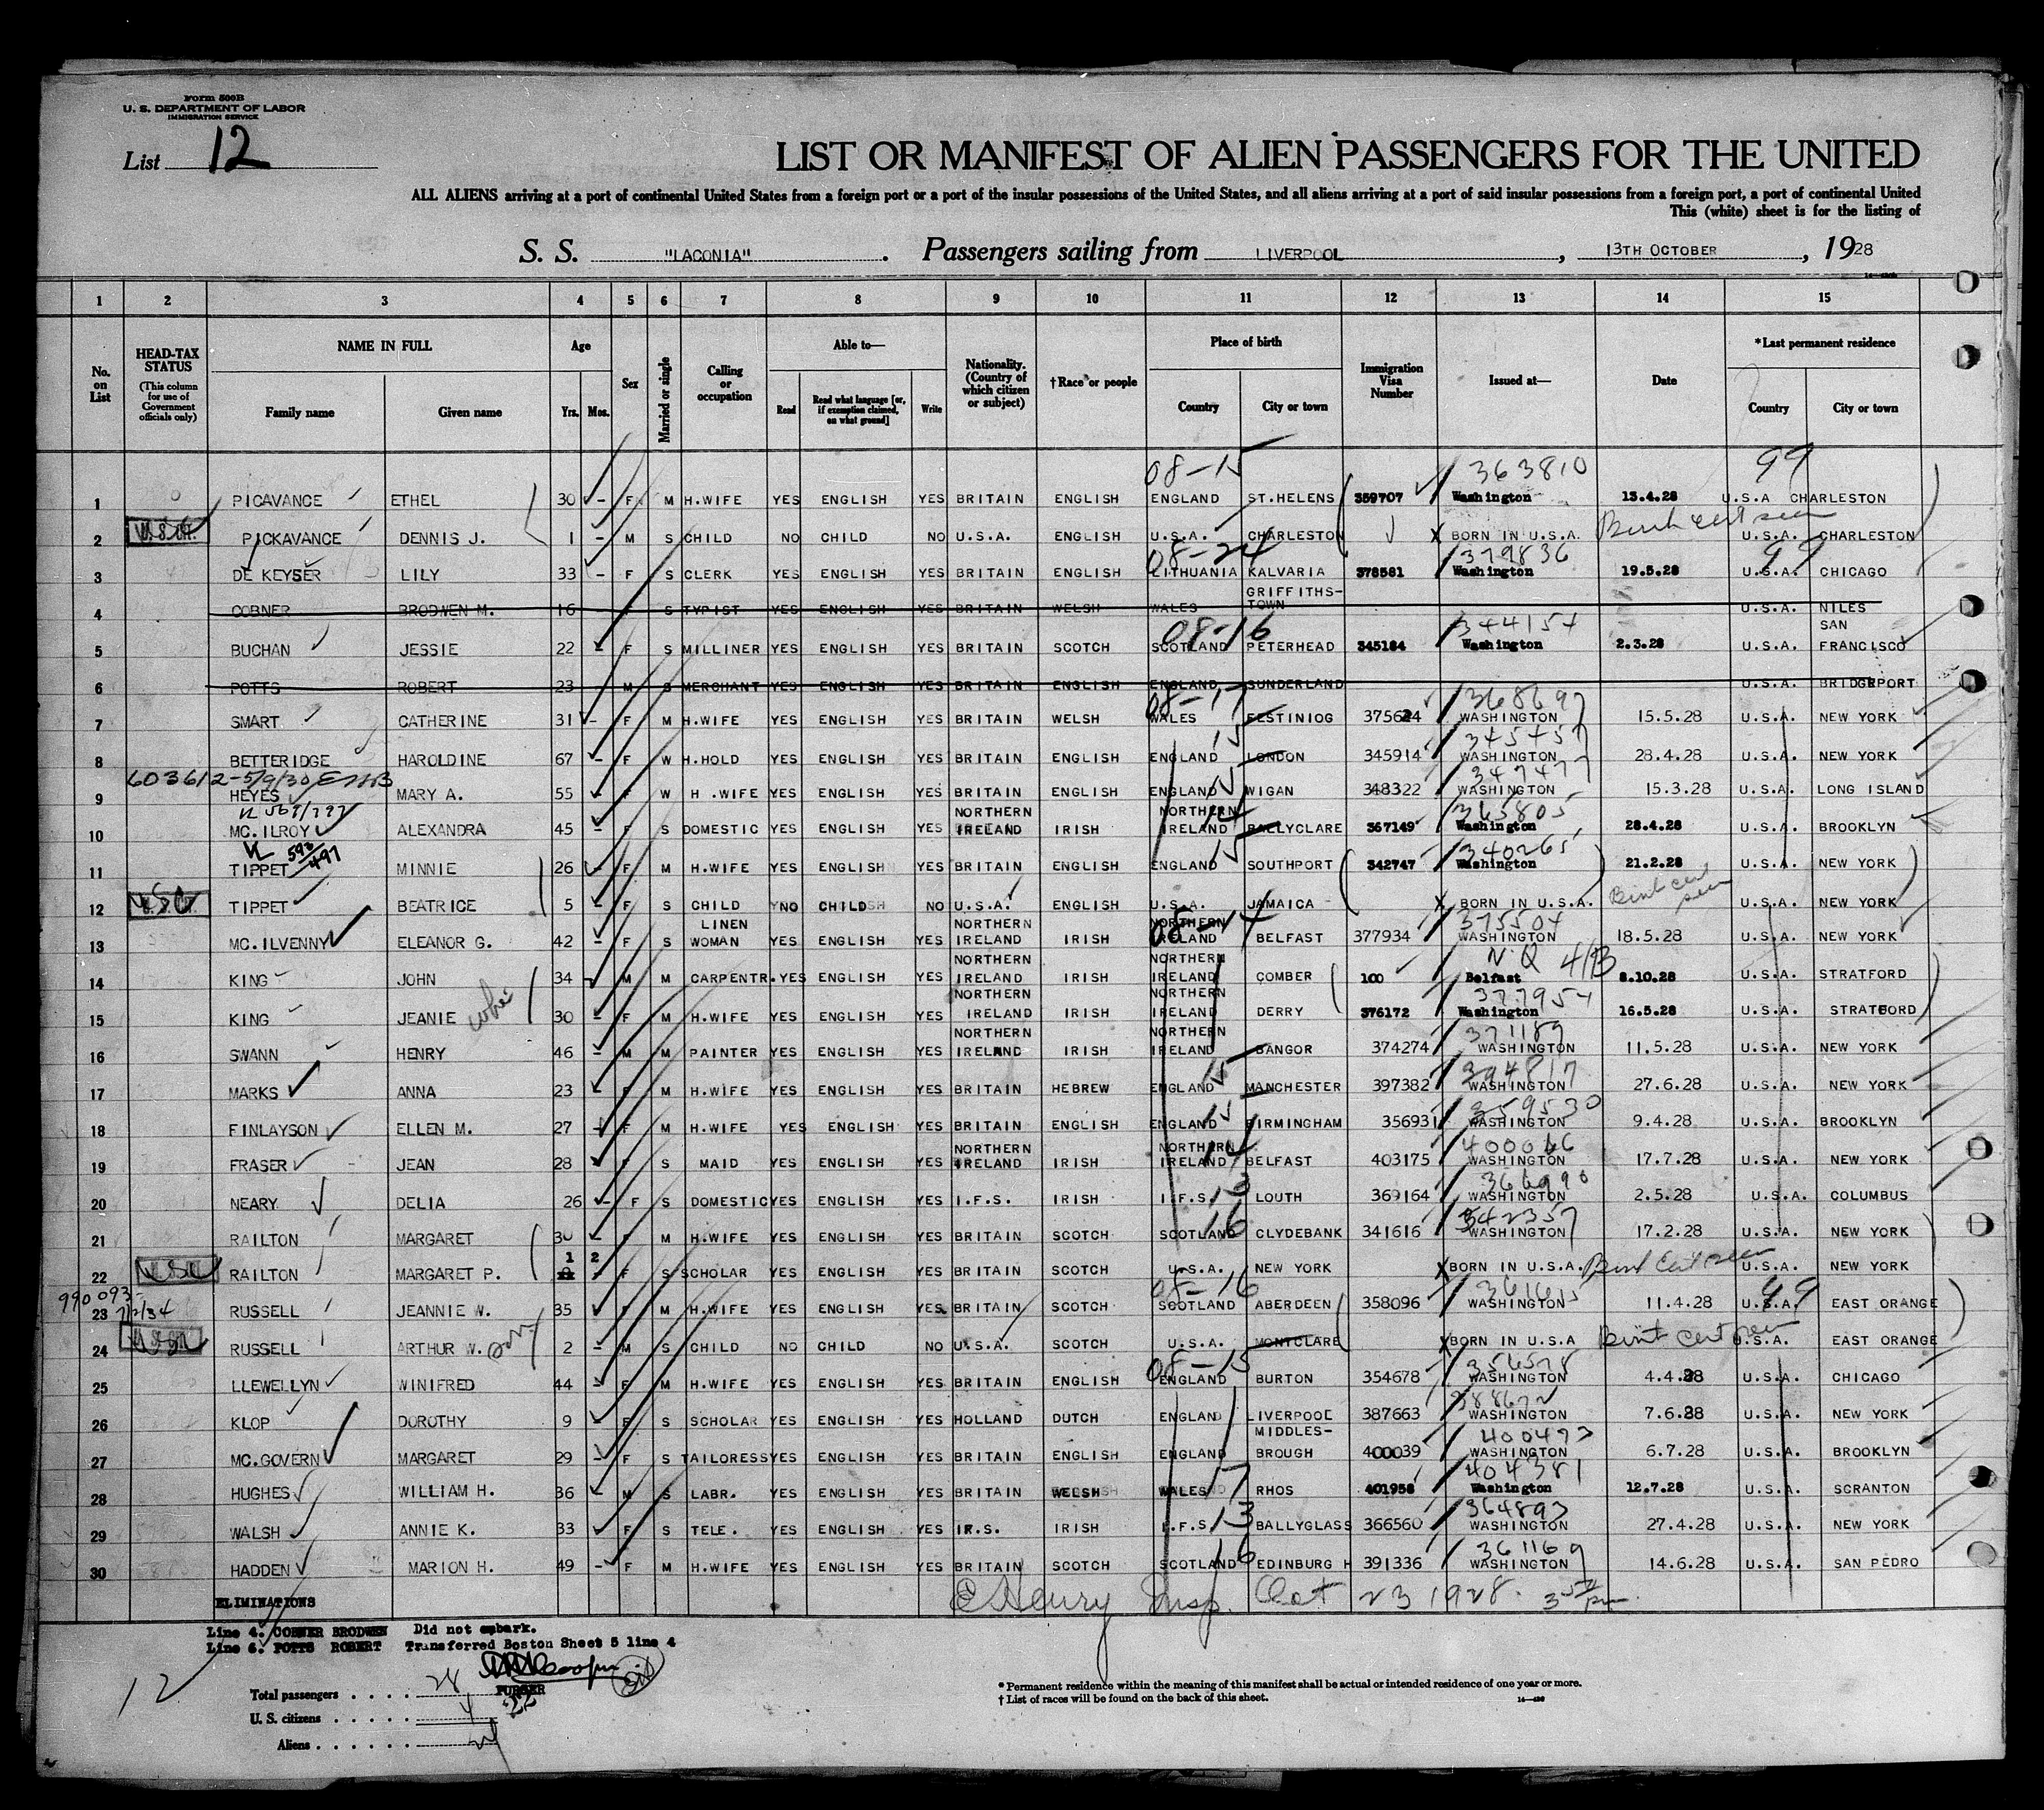 Form 500B
U. S. DEPARTMENT OF LABOR
IMMIGRATION SERVICE
List 12
LIST OR MANIFEST OF ALIEN PASSENGERS FOR THE UNITED
ALL ALIENS arriving at a port of continental United States from a foreign port or a port of the insular possessions of the United States, and all aliens arriving at a port of said insular possessions from a foreign port, a port of continental United
This (white) sheet is for the listing of
S. S. "LACONIA" . Passengers sailing from LIVERPOOL , 13TH OCTOBER , 1928
1 2 3 4 5 6 7 8 9 10 11 12 13 14 15
No. on List
HEAD-TAX STATUS (This column for use of Government officials only)
NAME IN FULL
Family name Given name
Age
Yrs. Mos.
Sex
Married or single
Calling or occupation
Able to—
Read Read what language [or, if exemption claimed, on what ground] Write
Nationality. (Country of which citizen or subject)
†Race or people
Place of birth
Country City or town
Immigration Visa Number
Issued at—
Date
*Last permanent residence
Country City or town
08-15 363810 99
1 PICAVANCE ETHEL 30 - F M H.WIFE YES ENGLISH YES BRITAIN ENGLISH ENGLAND ST.HELENS 359707 Washington 13.4.28 U.S.A CHARLESTON
2 PICKAVANCE DENNIS J. 1 - M S CHILD NO CHILD NO U.S.A. ENGLISH U.S.A. CHARLESTON X BORN IN U.S.A. Birth cert seen U.S.A. CHARLESTON
08-24 379836 99
3 DE KEYSER LILY 33 - F S CLERK YES ENGLISH YES BRITAIN ENGLISH LITHUANIA KALVARIA 378581 Washington 19.5.28 U.S.A. CHICAGO
4 COBNER BRODWEN M. 16 F S TYPIST YES ENGLISH YES BRITAIN WELSH WALES GRIFFITHS-TOWN U.S.A. NILES
08-16 344154
5 BUCHAN JESSIE 22 - F S MILLINER YES ENGLISH YES BRITAIN SCOTCH SCOTLAND PETERHEAD 345184 Washington 2.3.28 U.S.A. SAN FRANCISCO
6 POTTS ROBERT 23 M S MERCHANT YES ENGLISH YES BRITAIN ENGLISH ENGLAND SUNDERLAND U.S.A. BRIDGEPORT
08-17 368697
7 SMART CATHERINE 31 - F M H.WIFE YES ENGLISH YES BRITAIN WELSH WALES FESTINIOG 375624 WASHINGTON 15.5.28 U.S.A. NEW YORK
15 345457
8 BETTERIDGE HAROLDINE 67 - F W H.HOLD YES ENGLISH YES BRITAIN ENGLISH ENGLAND LONDON 345914 WASHINGTON 28.4.28 U.S.A. NEW YORK
603612-5/9/30 347477
9 HEYES MARY A. 55 - F W H.WIFE YES ENGLISH YES BRITAIN ENGLISH ENGLAND WIGAN 348322 WASHINGTON 15.3.28 U.S.A. LONG ISLAND
14 365805
10 MC.ILROY ALEXANDRA 45 - F S DOMESTIC YES ENGLISH YES NORTHERN IRELAND IRISH NORTHERN IRELAND BALLYCLARE 367149 Washington 28.4.28 U.S.A. BROOKLYN
593/497 15 340265
11 TIPPET MINNIE 26 - F M H.WIFE YES ENGLISH YES BRITAIN ENGLISH ENGLAND SOUTHPORT 342747 Washington 21.2.28 U.S.A. NEW YORK
12 TIPPET BEATRICE 5 - F S CHILD NO CHILD NO U.S.A. ENGLISH U.S.A. JAMAICA X BORN IN U.S.A. Birth cert seen U.S.A. NEW YORK
08-14 375504
13 MC.ILVENNY ELEANOR G. 42 - F S LINEN WOMAN YES ENGLISH YES NORTHERN IRELAND IRISH NORTHERN IRELAND BELFAST 377934 WASHINGTON 18.5.28 U.S.A. NEW YORK
N.Q 4/B
14 KING JOHN 34 - M M CARPENTR. YES ENGLISH YES NORTHERN IRELAND IRISH NORTHERN IRELAND COMBER 100 Belfast 8.10.28 U.S.A. STRATFORD
377954
15 KING JEANIE 30 - F M H.WIFE YES ENGLISH YES NORTHERN IRELAND IRISH NORTHERN IRELAND DERRY 376172 Washington 16.5.28 U.S.A. STRATFORD
371189
16 SWANN HENRY 46 - M M PAINTER YES ENGLISH YES NORTHERN IRELAND IRISH NORTHERN IRELAND BANGOR 374274 WASHINGTON 11.5.28 U.S.A. NEW YORK
15 394817
17 MARKS ANNA 23 - F M H.WIFE YES ENGLISH YES BRITAIN HEBREW ENGLAND MANCHESTER 397382 WASHINGTON 27.6.28 U.S.A. NEW YORK
15 359530
18 FINLAYSON ELLEN M. 27 - F M H.WIFE YES ENGLISH YES BRITAIN ENGLISH ENGLAND BIRMINGHAM 356931 WASHINGTON 9.4.28 U.S.A. BROOKLYN
14 400066
19 FRASER JEAN 28 F S MAID YES ENGLISH YES NORTHERN IRELAND IRISH NORTHERN IRELAND BELFAST 403175 WASHINGTON 17.7.28 U.S.A. NEW YORK
13 366990
20 NEARY DELIA 26 - F S DOMESTIC YES ENGLISH YES I.F.S. IRISH I.F.S. LOUTH 369164 WASHINGTON 2.5.28 U.S.A. COLUMBUS
16 342357
21 RAILTON MARGARET 30 F M H.WIFE YES ENGLISH YES BRITAIN SCOTCH SCOTLAND CLYDEBANK 341616 WASHINGTON 17.2.28 U.S.A. NEW YORK
22 RAILTON MARGARET P. 12 - F S SCHOLAR YES ENGLISH YES BRITAIN SCOTCH U.S.A. NEW YORK X BORN IN U.S.A. Birth Cert seen U.S.A. NEW YORK
990093- 7/2/34 08-16 361615 99
23 RUSSELL JEANNIE W. 35 F M H.WIFE YES ENGLISH YES BRITAIN SCOTCH SCOTLAND ABERDEEN 358096 WASHINGTON 11.4.28 U.S.A. EAST ORANGE
24 RUSSELL ARTHUR W. 2 - M S CHILD NO CHILD NO U.S.A. SCOTCH U.S.A. MONTCLARE X BORN IN U.S.A Birth cert seen U.S.A. EAST ORANGE
08-15 356578
25 LLEWELLYN WINIFRED 44 - F M H.WIFE YES ENGLISH YES BRITAIN ENGLISH ENGLAND BURTON 354678 WASHINGTON 4.4.28 U.S.A. CHICAGO
388672
26 KLOP DOROTHY 9 - F S SCHOLAR YES ENGLISH YES HOLLAND DUTCH ENGLAND LIVERPOOL 387663 WASHINGTON 7.6.28 U.S.A. NEW YORK
400493
27 MC.GOVERN MARGARET 29 - F S TAILORESS YES ENGLISH YES BRITAIN ENGLISH ENGLAND MIDDLES-BROUGH 400039 WASHINGTON 6.7.28 U.S.A. BROOKLYN
17 404381
28 HUGHES WILLIAM H. 36 - M S LABR. YES ENGLISH YES BRITAIN WELSH WALES RHOS 401958 Washington 12.7.28 U.S.A. SCRANTON
13 364893
29 WALSH ANNIE K. 33 F S TELE. YES ENGLISH YES IR.S. IRISH I.F.S BALLYGLASS 366560 WASHINGTON 27.4.28 U.S.A. NEW YORK
16 361169
30 HADDEN MARION H. 49 - F M H.WIFE YES ENGLISH YES BRITAIN SCOTCH SCOTLAND EDINBURGH 391336 WASHINGTON 14.6.28 U.S.A. SAN PEDRO
Henry Insp. Oct 23 1928.
ELIMINATIONS
Line 4. COBNER BRODWEN Did not embark.
Line 6. POTTS ROBERT Transferred Boston Sheet 5 line 4
PURSER
12
Total passengers . . . . 28
U. S. citizens . . . . . 4
Aliens . . . . . . 24
* Permanent residence within the meaning of this manifest shall be actual or intended residence of one year or more.
† List of races will be found on the back of this sheet.